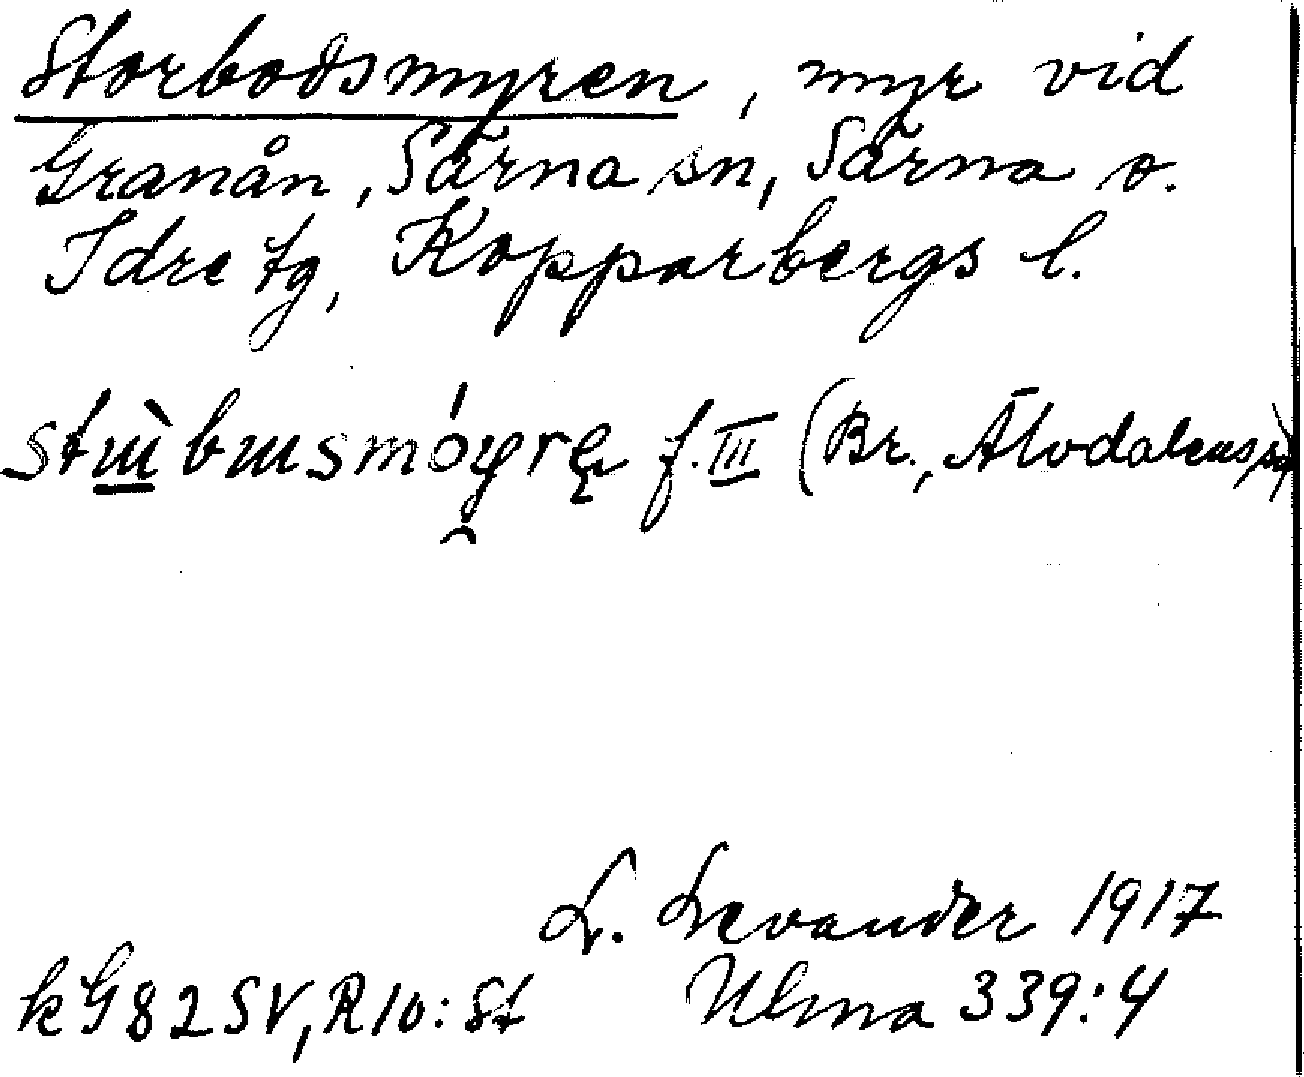 Storbodsmyren, myr vid
Granån, Särna sn, Särna o.
Idre tg, Kopparbergs l.
stɯ̀bɯsmóyrę f. III (Br., Älvdalens sn)
L. Levander 1917
kG82SV, R10:St Ulma 339:4